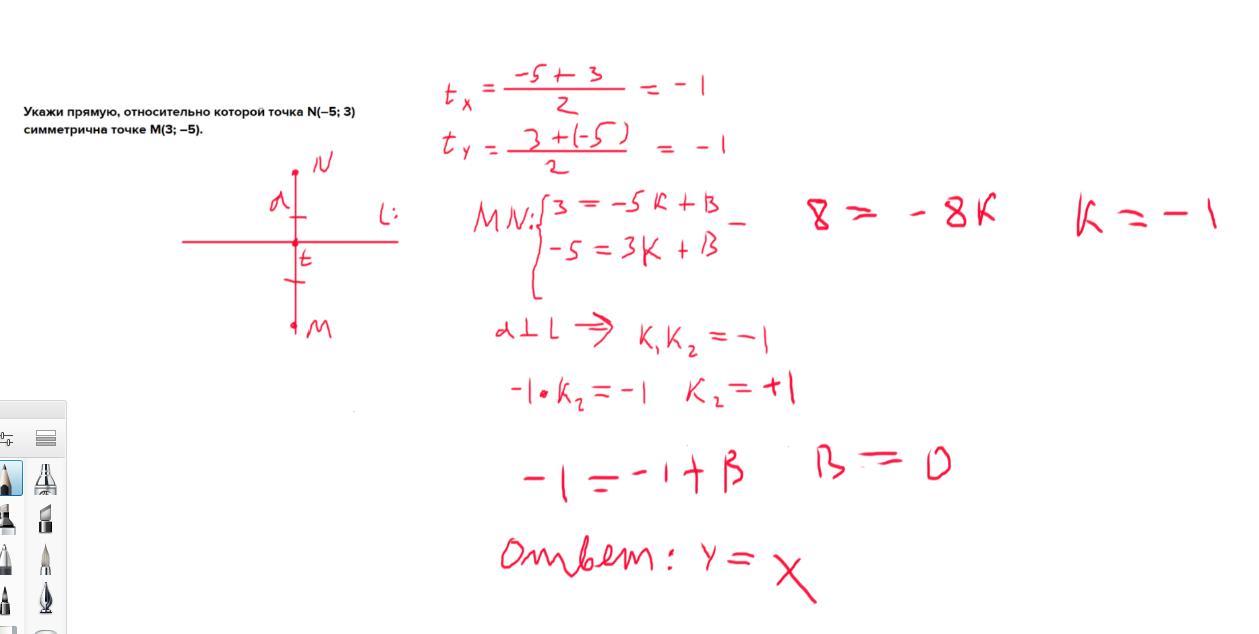 Укажи прямую, относительно которой точка N(–5; 3)
симметрична точке M(3; –5).
N
d
L:
t
M
t_x = \frac{-5+3}{2} = -1
t_y = \frac{3+(-5)}{2} = -1
MN: { 3 = -5K + B –   8 = -8K   K = -1
-5 = 3K + B
d ⊥ L ⇒ K₁K₂ = -1
-1 • K₂ = -1   K₂ = +1
-1 = -1 + B   B = 0
Ответ: y = x